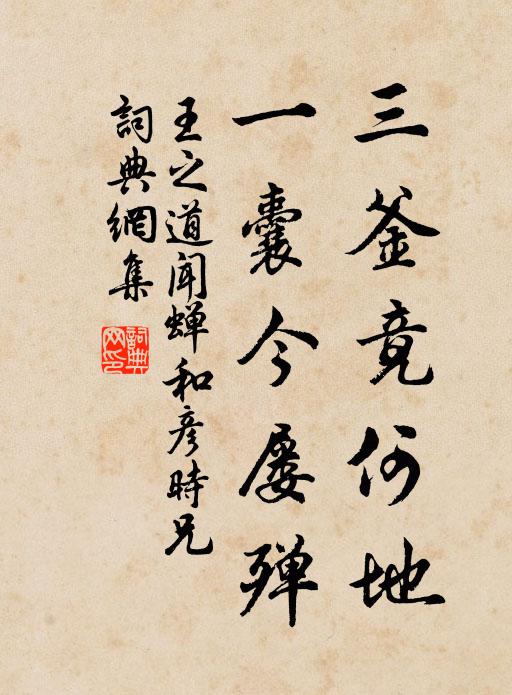 三釜竟何地
一囊今屡殚
王之道闻蝉和彦时兄
詞典網集
詞典网印